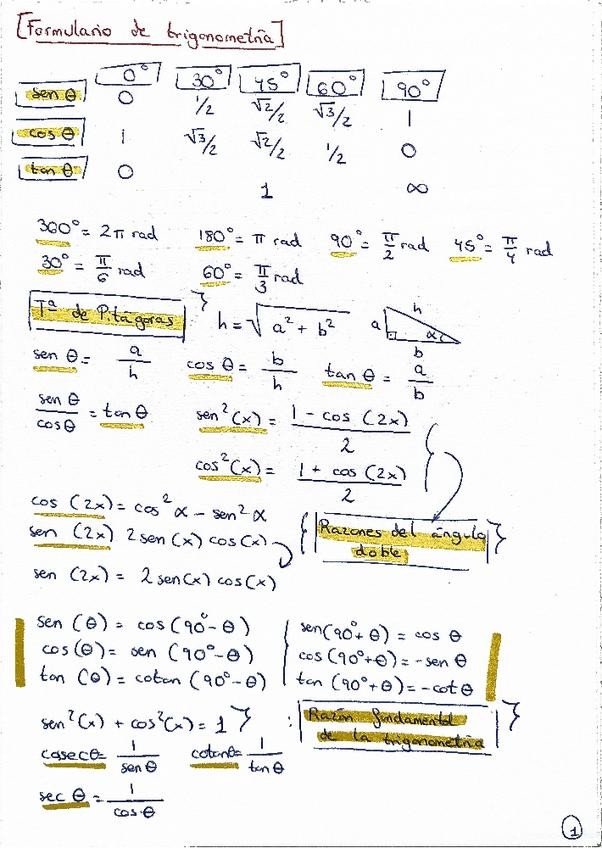 [Formulario de trigonometría]
0° 30° 45° 60° 90°
sen θ 0 1/2 √2/2 √3/2 1
cos θ 1 √3/2 √2/2 1/2 0
tan θ 0 1 ∞
360° = 2π rad 180° = π rad 90° = π/2 rad 45° = π/4 rad
30° = π/6 rad 60° = π/3 rad
Tª de Pitágoras } h = √(a² + b²) a h α b
sen θ = a/h cos θ = b/h tan θ = a/b
sen θ/cos θ = tan θ sen²(x) = (1 - cos (2x))/2
cos²(x) = (1 + cos (2x))/2
cos (2x) = cos² α - sen² α
sen (2x) 2 sen(x) cos(x)
{ Razones del ángulo doble }
sen (2x) = 2 sen(x) cos(x)
sen (θ) = cos (90° - θ) sen(90° + θ) = cos θ
cos (θ) = sen (90° - θ) cos (90° + θ) = -sen θ
tan (θ) = cotan (90° - θ) tan (90° + θ) = -cot θ
sen²(x) + cos²(x) = 1 } : Razón fundamental de la trigonometría }
cosec θ = 1/sen θ cotan θ = 1/tan θ
sec θ = 1/cos θ
1